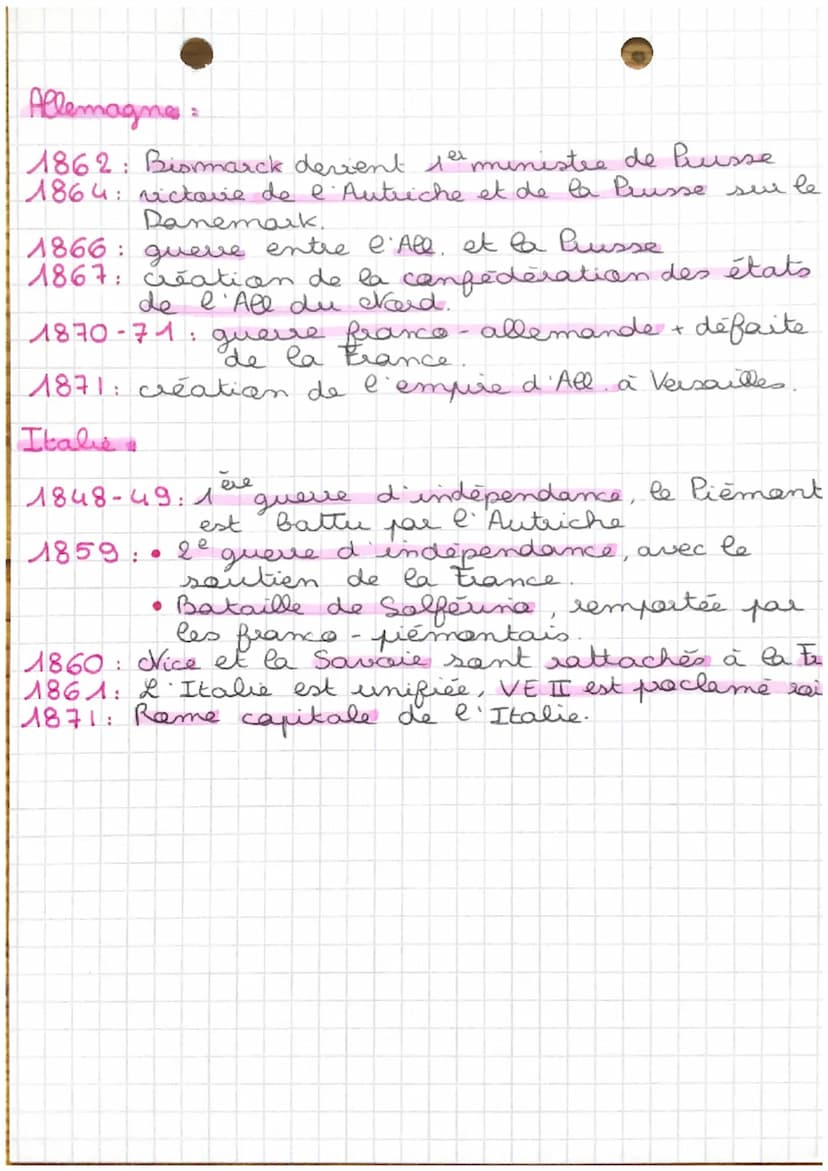 Allemagne :
1862 : Bismarck devient 1er ministre de Prusse
1864 : victoire de l'Autriche et de la Prusse sur le
Danemark.
1866 : guerre entre l'All. et la Prusse
1867 : création de la confédération des états
de l'All du Nord.
1870-71 : guerre franco-allemande + défaite
de la France.
1871 : création de l'empire d'All. à Versailles.
Italie :
1848-49 : 1ère guerre d'indépendance, le Piémont
est battu par l'Autriche
1859 : • 2e guerre d'indépendance, avec le
soutien de la France.
• Bataille de Solférino, remportée par
les franco-piémontais.
1860 : Nice et la Savoie sont rattachés à la Fr
1861 : L'Italie est unifiée, VE II est poclamé roi
1871 : Rome capitale de l'Italie.